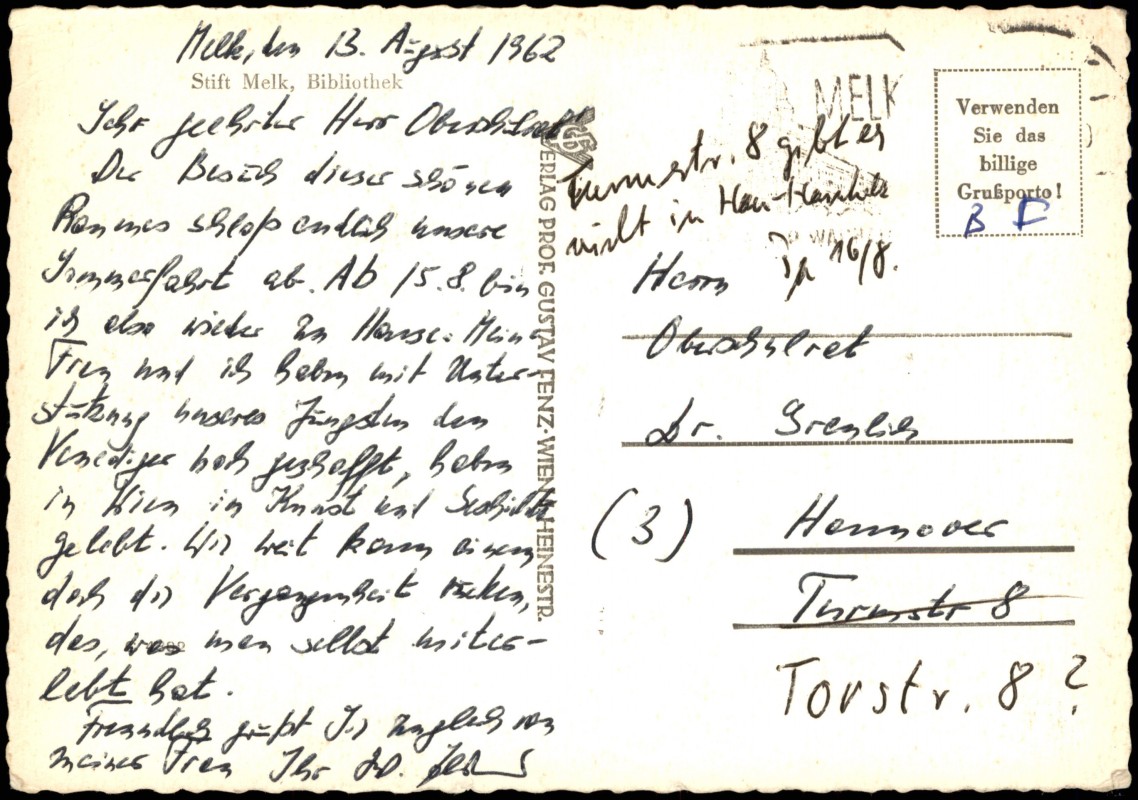 Melk, den 13. August 1962
Stift Melk, Bibliothek
Sehr geehrter Herr Oberschulrat!
Der Besuch dieser schönen
Raumes schloß endlich unsere
Sommerfahrt ab. Ab 15.8. bin
ich also wieder zu Hause. Meine
Frau und ich haben mit Unter-
stützung unseres Jüngsten den
Venediger noch geschafft, haben
in Wien in Kunst und Geschichte
gelebt. Wie weit kann einem
doch die Vergangenheit rücken,
das, was man selbst miter-
lebt hat.
Freundlich grüßt Sie zugleich von
meiner Frau Ihr
VERLAG PROF. GUSTAV FENZ·WIEN HEINESTR.
MELK
Turmstr. 8 gibt es
nicht in Han-
16/8.
Verwenden
Sie das
billige
Grußporto!
B F
Herrn
Oberschulrat
Dr. Grenlich
(3) Hannover
Turmstr 8
Torstr. 8?